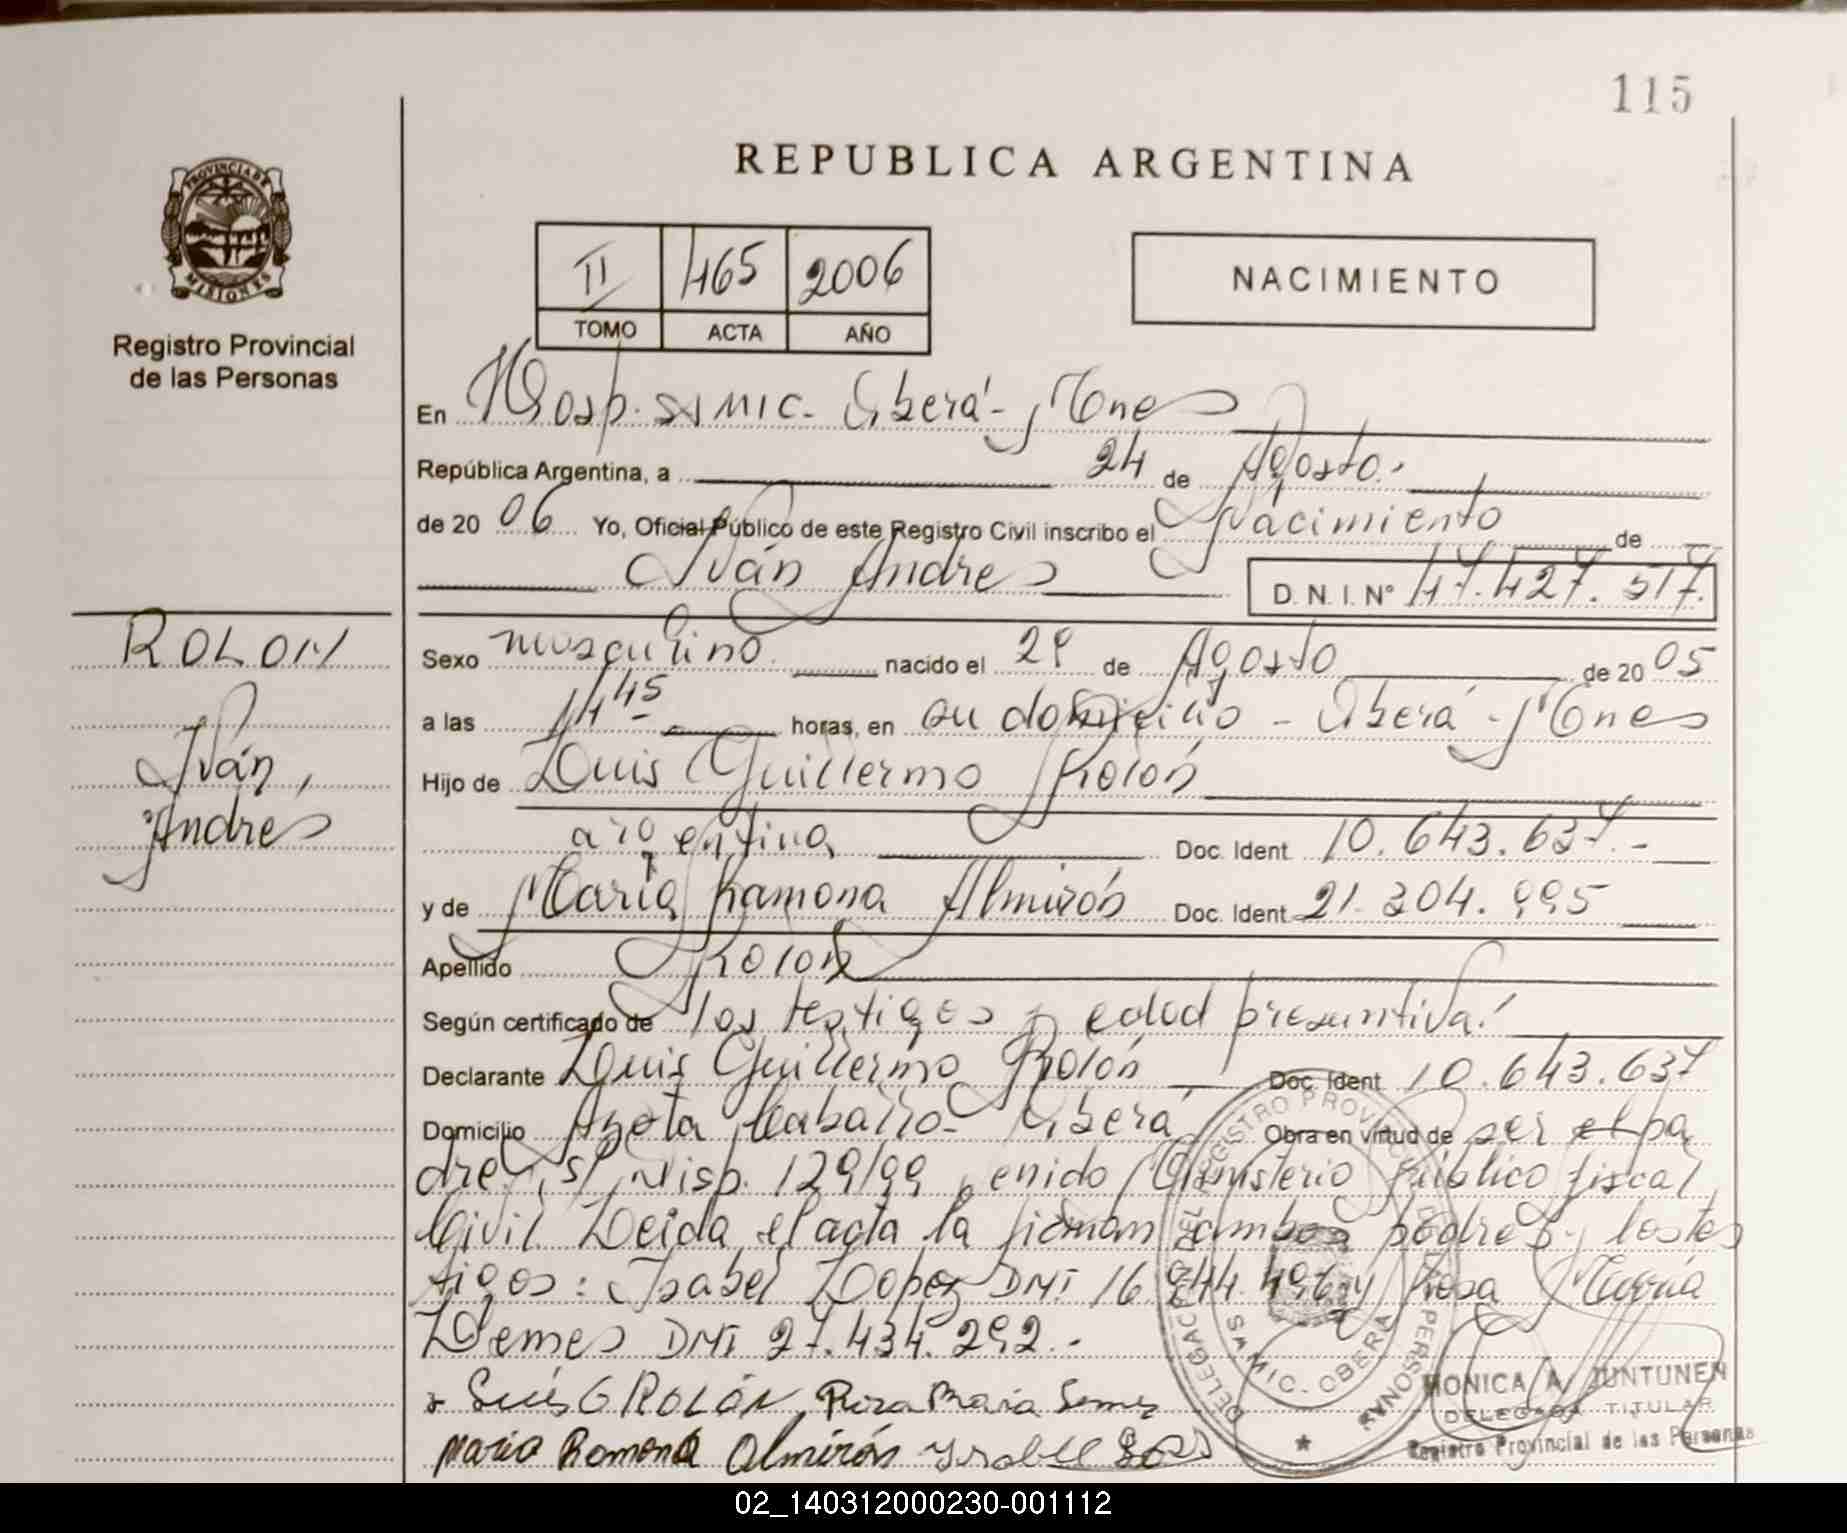 115
REPUBLICA ARGENTINA
PROVINCIA DE
MISIONES
Registro Provincial
de las Personas
II 465 2006
TOMO ACTA AÑO
NACIMIENTO
En Hosp. SAMIC - Oberá - Mnes
República Argentina, a 24 de Agosto.-
de 20 06 Yo, Oficial Público de este Registro Civil inscribo el Nacimiento de
Iván Andres D. N. I. N° 47.427.517.
ROLON
Iván,
Andrés
Sexo masculino. nacido el 29 de Agosto de 20 05
a las 14 45 horas, en su domicilio - Oberá - Mnes
Hijo de Luis Guillermo Rolón
argentina Doc. Ident. 10.643.637.-
y de María Ramona Almirón Doc. Ident. 21.304.995
Apellido Rolón
Según certificado de los testigos y edad presuntiva.
Declarante Luis Guillermo Rolón Doc. Ident. 10.643.637
Domicilio Azota Caballo - Oberá Obra en virtud de ser el pa
dre, s/ Disp. 129/99, Ministerio Público fiscal
Civil. Leída el acta la firman ambos padres y los tes
tigos: Isabel Lopez DNI 16.944.496 y Rosa María
Lemes DNI 27.434.292.-
Luis G ROLÓN Roza Maria Lemes
Maria Romona Almirón
DELEGACION DEL REGISTRO PROVINCIAL DE LAS PERSONAS
OBERA
MONICA A. JUNTUNEN
DELEGADA TITULAR
Registro Provincial de las Personas
02_140312000230-001112